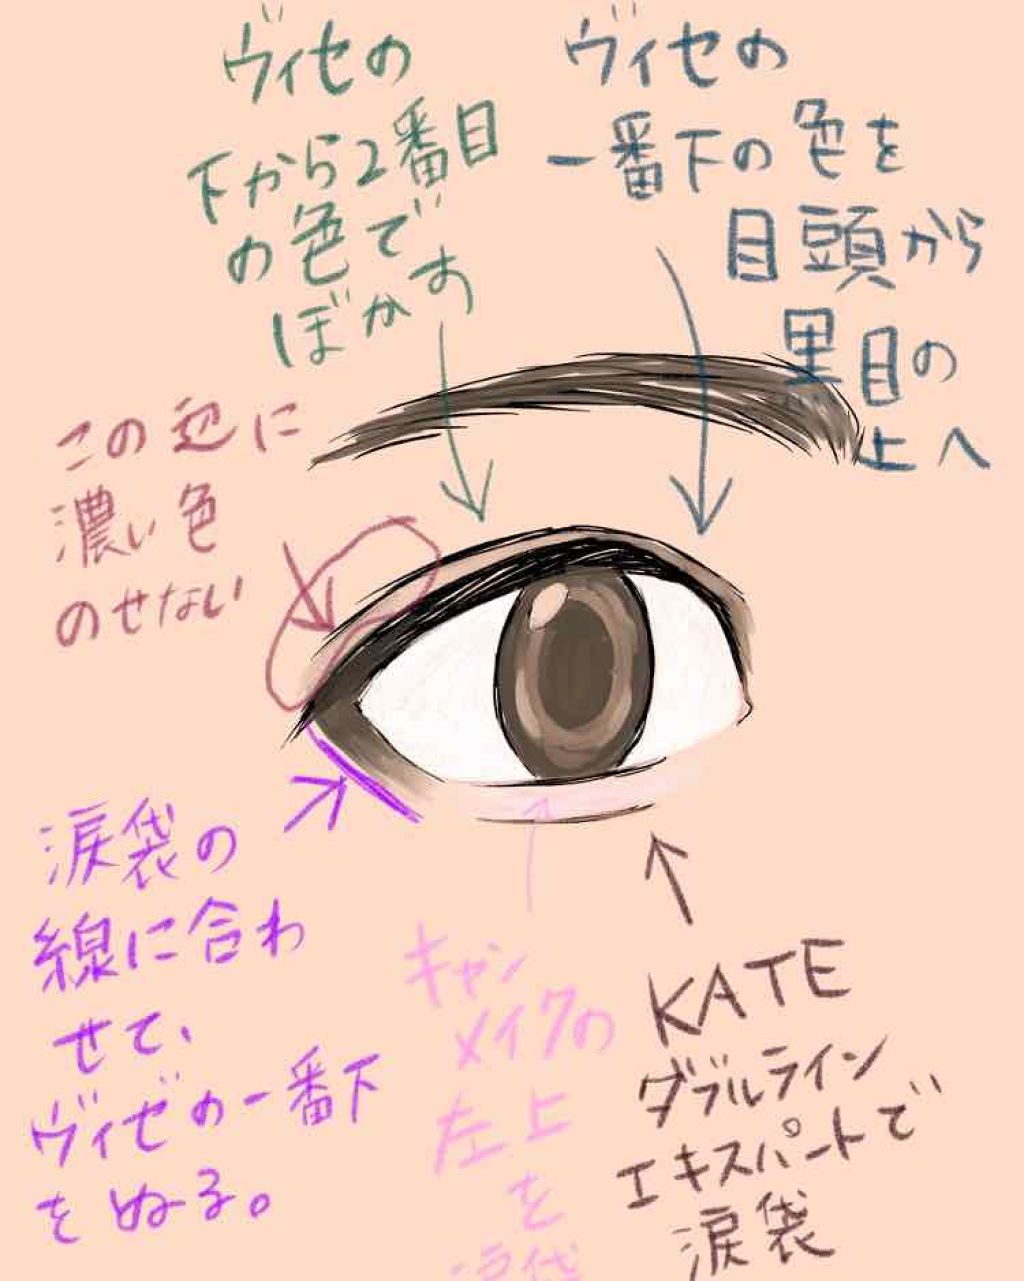 ヴィセの
下から2番目
の色で
ぼかす
ヴィセの
一番下の色を
目頭から
黒目の
上へ
この辺に
濃い色
のせない
涙袋の
線に合わ
せて、
ヴィゼの一番下
をぬる。
キャン
メイクの
左上
を
涙袋
KATE
ダブルライン
エキスパートで
涙袋